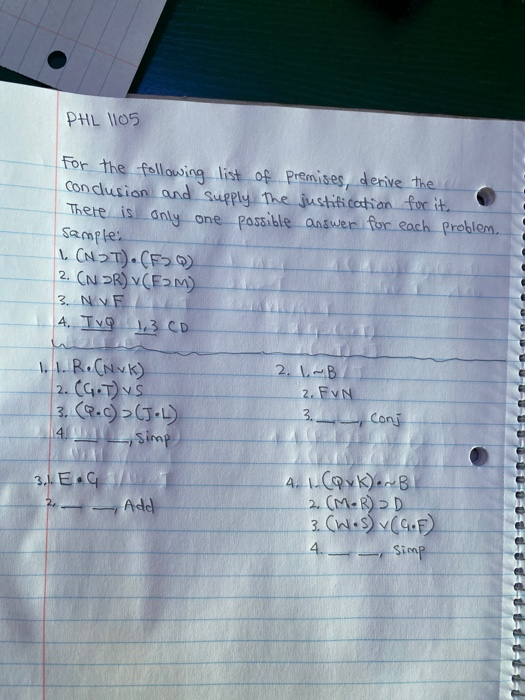 PHL 1105
For the following list of premises, derive the
conclusion and supply the justification for it.
There is only one possible answer for each problem.
Sample:
1. (N⊃T)•(F⊃Q)
2. (N⊃R)∨(F⊃M)
3. N∨F
4. T∨Q 1,3 CD
1. 1. R•(N∨K)
2. (G•T)∨S
3. (Q•C)⊃(J•L)
4. __ __, Simp
2. 1. ~B
2. F∨N
3. __ __, Conj
3. 1. E•G
2. __ __, Add
4. 1. (Q∨K)•~B
2. (M•R)⊃D
3. (W•S)∨(G•F)
4. __ __, Simp